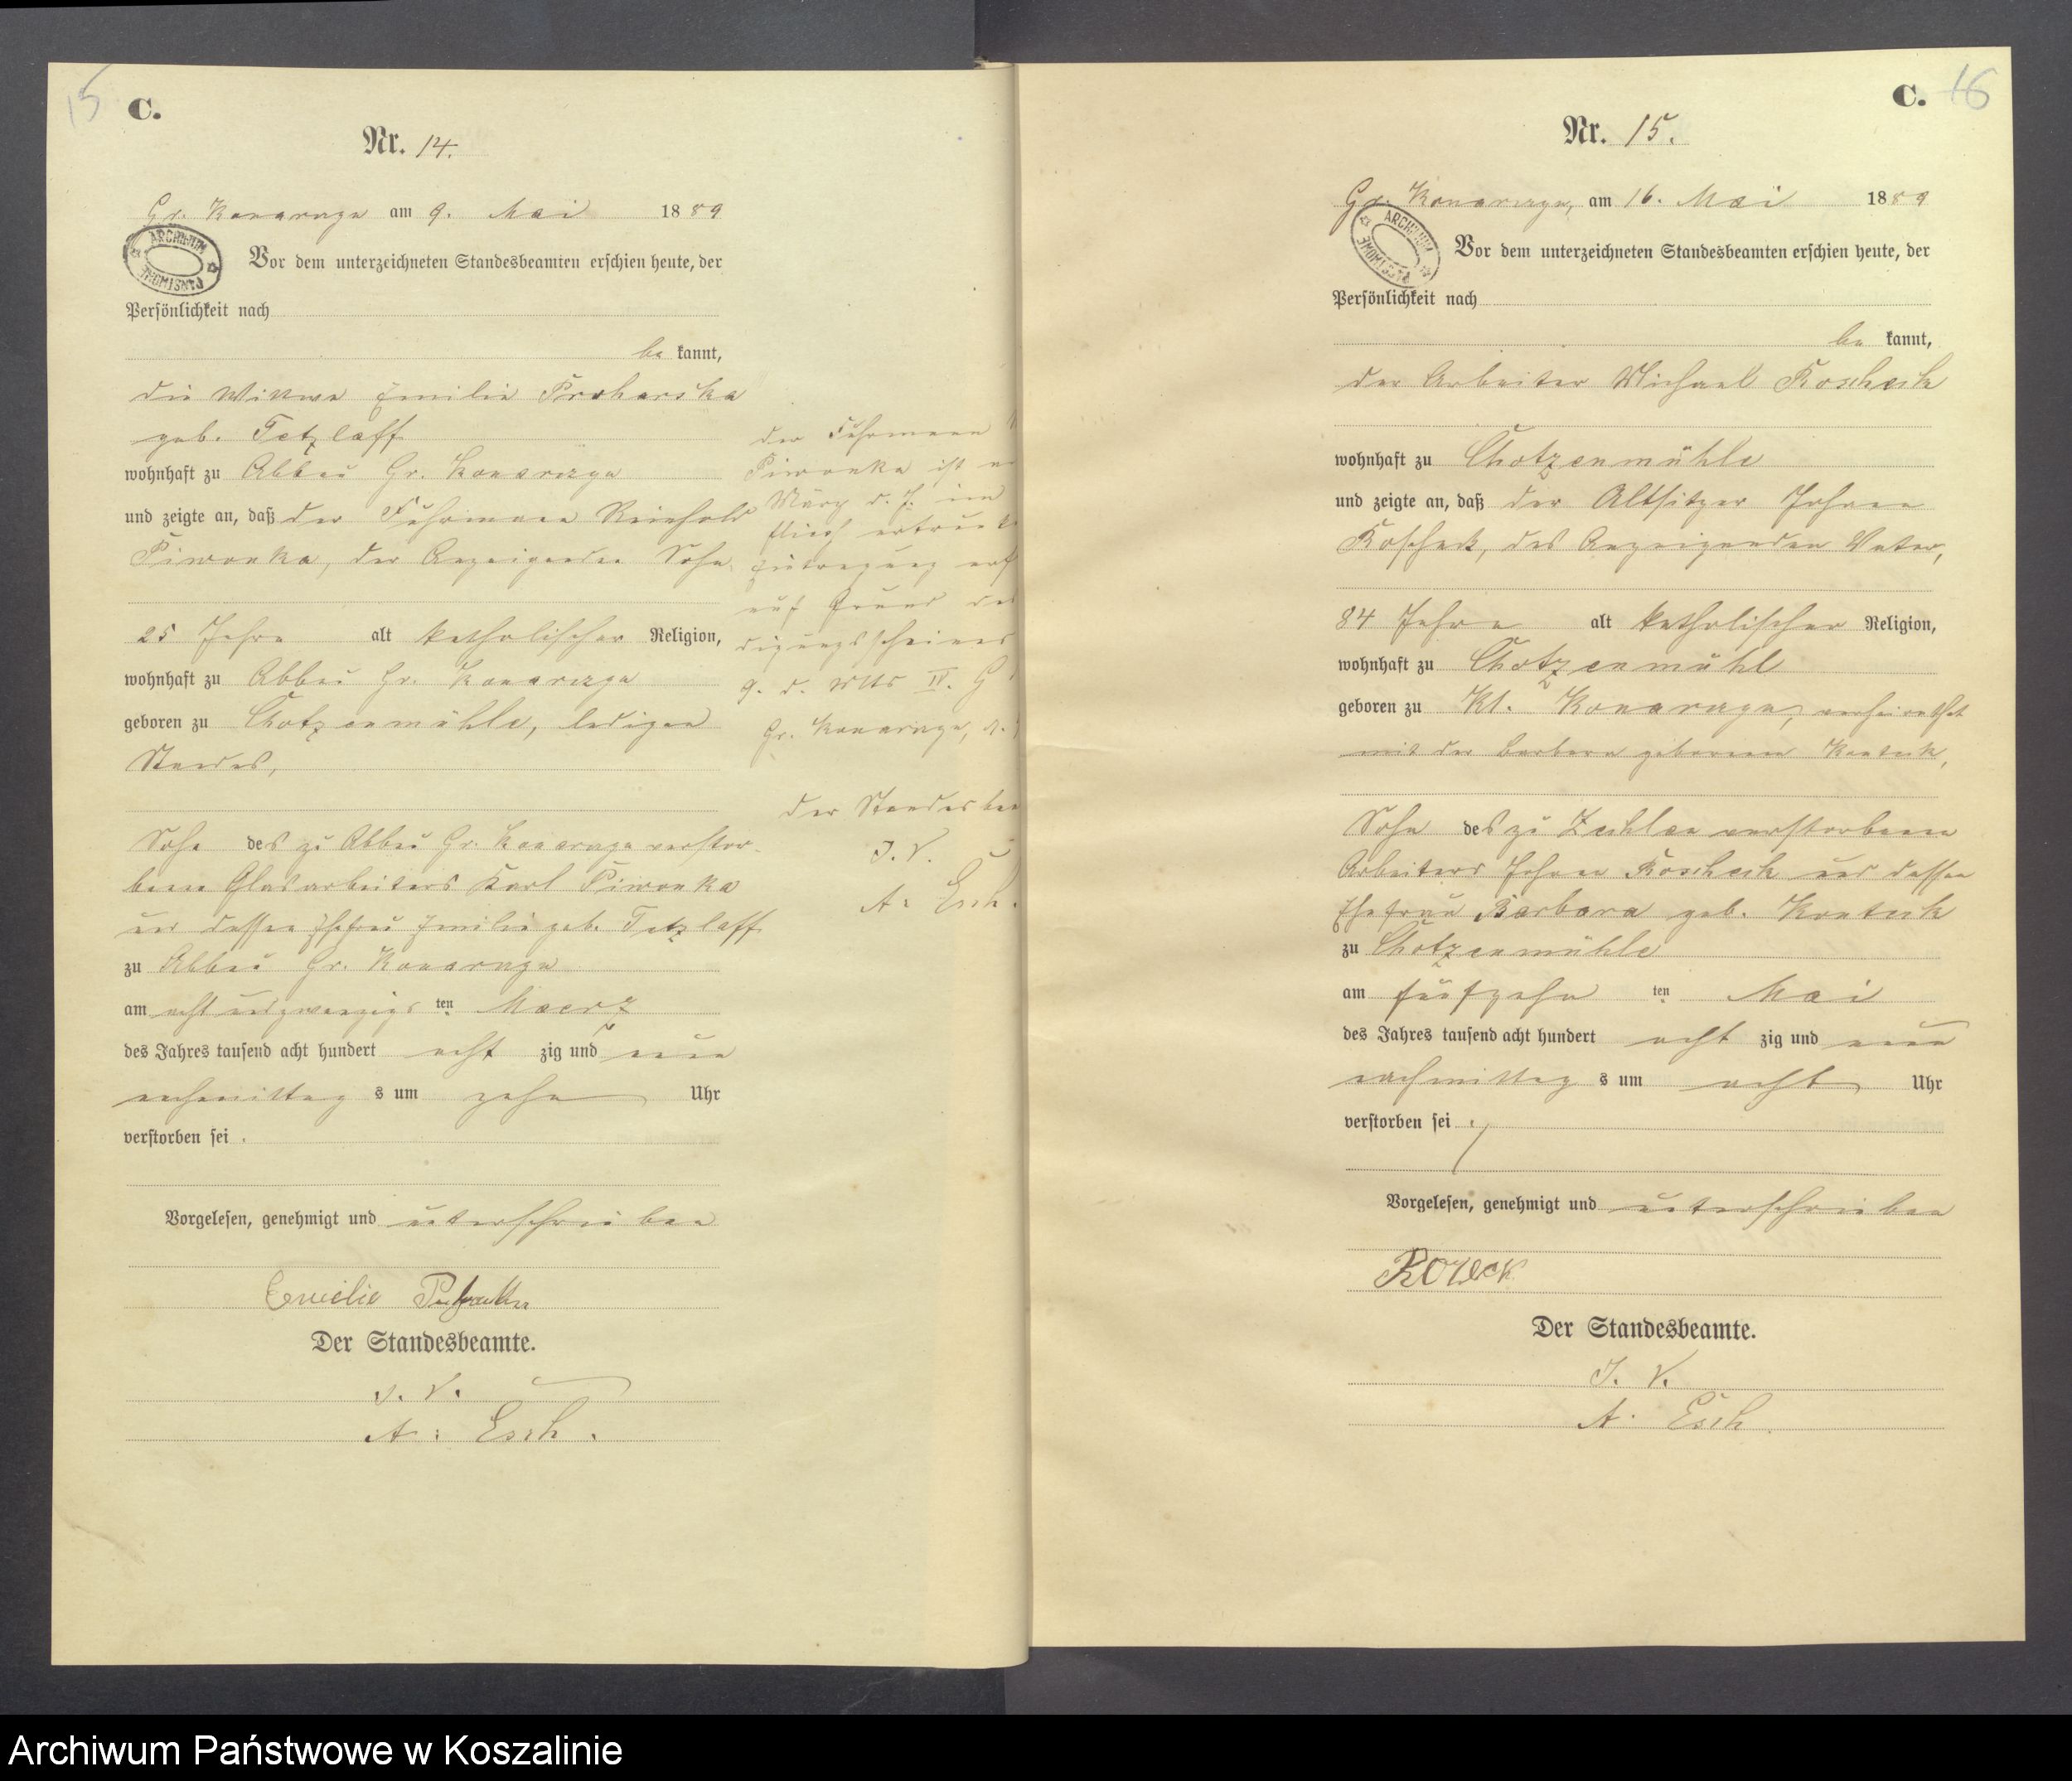 15
C.
Nr. 14.
Gr. Konarzyn am 9. Mai 1889
ARCHIWUM PAŃSTWOWE
Vor dem unterzeichneten Standesbeamten erschien heute, der
Persönlichkeit nach
be kannt,
die Wittwe Emilie
geb. Tetzlaff
wohnhaft zu Abbau Gr. Konarzyn
und zeigte an, daß der Fuhrmann Reinhold
Piwonka, der Anzeigenden Sohn,
25 Jahre alt katholischer Religion,
wohnhaft zu Abbau Gr. Konarzyn
geboren zu Chotzenmühle, ledigen
Standes,
Sohn des zu Abbau Gr. Konarzyn verstor-
benen Glasarbeiters Karl Piwonka
und dessen Ehefrau Emilie geb. Tetzlaff
zu Abbau Gr. Konarzyn
am acht und zwanzigs ten Maerz
des Jahres tausend acht hundert acht zig und neun
nachmittag s um zehn Uhr
verstorben sei .
Vorgelesen, genehmigt und unterschrieben
Emilie
Der Standesbeamte.
J. V.
A. Esch.
der Fuhrmann
Piwonka ist
März d. J. im
Eintragung
auf Grund des
digungsscheines
9. d. Mts IV. G
Gr. Konarzyn, d.
der Standesbea
J. V.
A. Esch.
C. 16
Nr. 15.
Gr. Konarzyn, am 16. Mai 1889
ARCHIWUM PAŃSTWOWE
Vor dem unterzeichneten Standesbeamten erschien heute, der
Persönlichkeit nach
be kannt,
der Arbeiter Michael Koscheck
wohnhaft zu Chotzenmühle
und zeigte an, daß der Altsitzer Johann
Koscheck, des Anzeigenden Vater,
84 Jahre alt katholischer Religion,
wohnhaft zu Chotzenmühl
geboren zu Kl. Konarzyn, verheirathet
mit der Barbara geborenen Kontek,
Sohn des zu Zechlau verstorbenen
Arbeiters Johann Koscheck und dessen
Ehefrau Barbara geb. Kontek
zu Chotzenmühle
am fünfzehn ten Mai
des Jahres tausend acht hundert acht zig und neun
nachmittag s um acht Uhr
verstorben sei .
Vorgelesen, genehmigt und unterschrieben
Der Standesbeamte.
J. V.
A. Esch
Archiwum Państwowe w Koszalinie